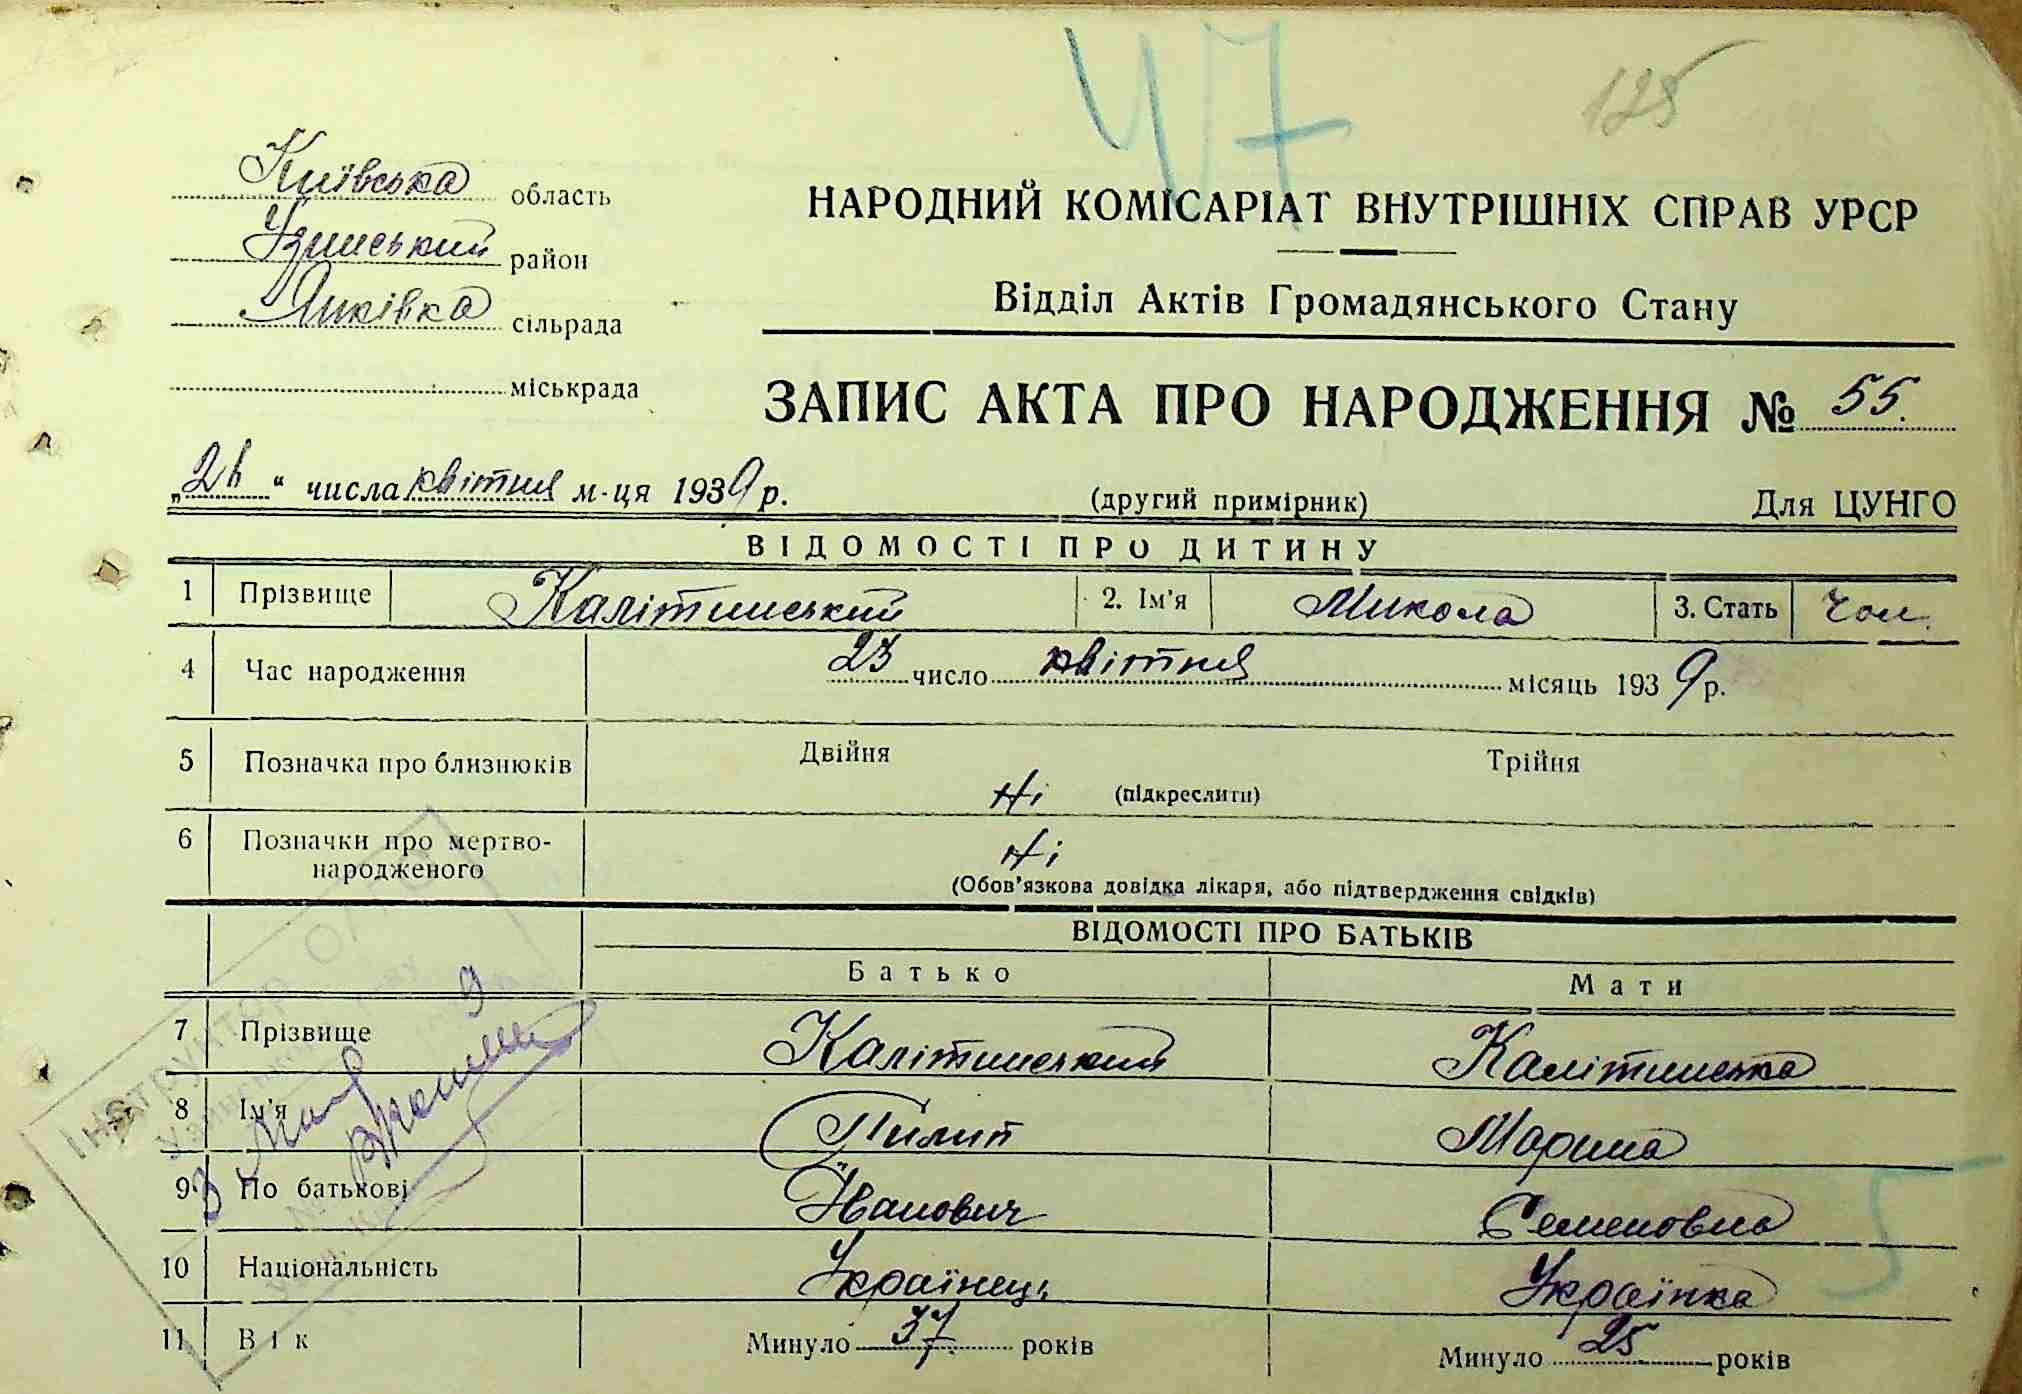 47
125
Київська область
Узинський район
Янківка сільрада
міськрада
НАРОДНИЙ КОМІСАРІАТ ВНУТРІШНІХ СПРАВ УРСР
Відділ Актів Громадянського Стану
ЗАПИС АКТА ПРО НАРОДЖЕННЯ № 55.
"26" числа квітня м-ця 1939 р. (другий примірник) Для ЦУНГО
ВІДОМОСТІ ПРО ДИТИНУ
1 Прізвище Калітинський 2. Ім'я Микола 3. Стать Чол.
4 Час народження 23 число квітня місяць 1939 р.
5 Позначка про близнюків Двійня Трійня
Ні (підкреслити)
6 Позначки про мертво-народженого Ні
(Обов'язкова довідка лікаря, або підтвердження свідків)
ВІДОМОСТІ ПРО БАТЬКІВ
Батько Мати
7 Прізвище Калітинський Калітинська
8 Ім'я Пилип Марина
9 По батькові Іванович Семеновна
10 Національність Українець Українка
11 Вік Минуло 37 років Минуло 25 років
ІНСТРУКТОР
5